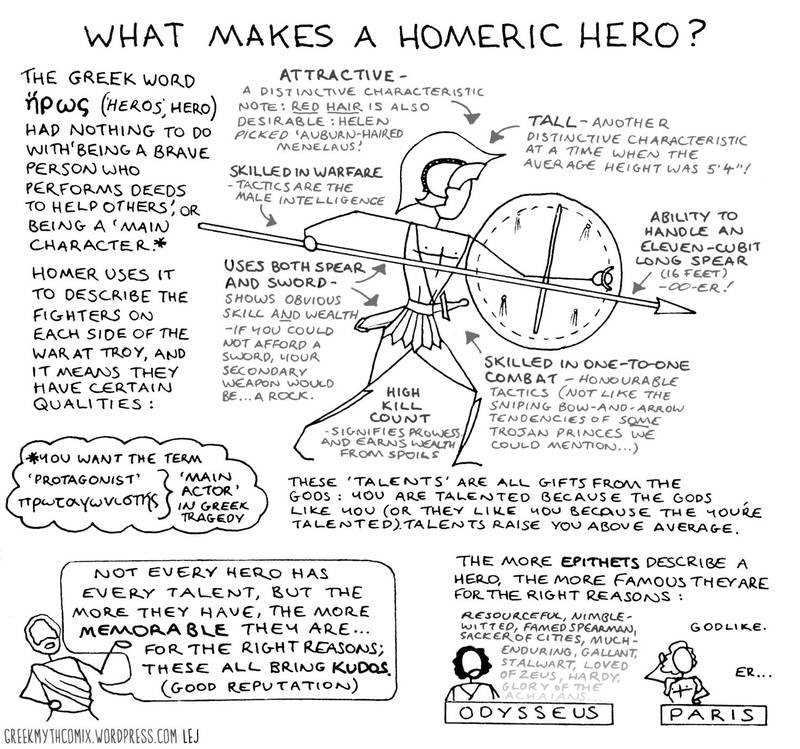 WHAT MAKES A HOMERIC HERO?
THE GREEK WORD
ἥρως ('HEROS', HERO)
HAD NOTHING TO DO
WITH 'BEING A BRAVE
PERSON WHO
PERFORMS DEEDS
TO HELP OTHERS', OR
BEING A 'MAIN
CHARACTER.'*
HOMER USES IT
TO DESCRIBE THE
FIGHTERS ON
EACH SIDE OF THE
WAR AT TROY, AND
IT MEANS THEY
HAVE CERTAIN
QUALITIES:
ATTRACTIVE-
A DISTINCTIVE CHARACTERISTIC
NOTE: RED HAIR IS ALSO
DESIRABLE: HELEN
PICKED 'AUBURN-HAIRED
MENELAUS!'
TALL-ANOTHER
DISTINCTIVE CHARACTERISTIC
AT A TIME WHEN THE
AVERAGE HEIGHT WAS 5'4"!
SKILLED IN WARFARE
-TACTICS ARE THE
MALE INTELLIGENCE
ABILITY TO
HANDLE AN
ELEVEN-CUBIT
LONG SPEAR
(16 FEET)
-OO-ER!
USES BOTH SPEAR
AND SWORD-
SHOWS OBVIOUS
SKILL AND WEALTH
-IF YOU COULD
NOT AFFORD A
SWORD, YOUR
SECONDARY
WEAPON WOULD
BE...A ROCK.
HIGH
KILL
COUNT
-SIGNIFIES PROWESS
AND EARNS WEALTH
FROM SPOILS
SKILLED IN ONE-TO-ONE
COMBAT - HONOURABLE
TACTICS (NOT LIKE THE
SNIPING BOW-AND-ARROW
TENDENCIES OF SOME
TROJAN PRINCES WE
COULD MENTION...)
*YOU WANT THE TERM
'PROTAGONIST'
πρωταγωνιστής
'MAIN
ACTOR'
IN GREEK
TRAGEDY
THESE 'TALENTS' ARE ALL GIFTS FROM THE
GODS: YOU ARE TALENTED BECAUSE THE GODS
LIKE YOU (OR THEY LIKE YOU BECAUSE THE YOU'RE
TALENTED). TALENTS RAISE YOU ABOVE AVERAGE.
NOT EVERY HERO HAS
EVERY TALENT, BUT THE
MORE THEY HAVE, THE MORE
MEMORABLE THEY ARE...
FOR THE RIGHT REASONS;
THESE ALL BRING KUDOS.
(GOOD REPUTATION)
THE MORE EPITHETS DESCRIBE A
HERO, THE MORE FAMOUS THEY ARE
FOR THE RIGHT REASONS:
RESOURCEFUL, NIMBLE-
WITTED, FAMED SPEARMAN,
SACKER OF CITIES, MUCH-
ENDURING, GALLANT,
STALWART, LOVED
OF ZEUS, HARDY,
GLORY OF THE
ACHAIANS...
ODYSSEUS
GODLIKE.
ER...
PARIS
GREEKMYTHCOMIX.WORDPRESS.COM LEJ